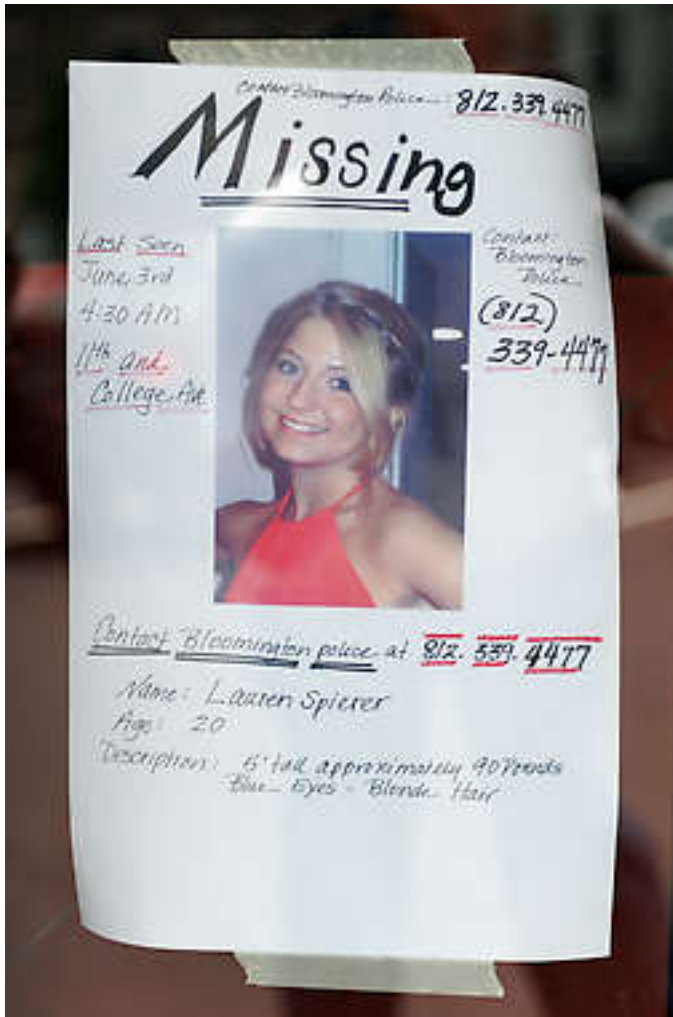 Contact Bloomington Police - 812.339.4477
Missing
Last Seen
June 3rd
4:30 AM
11th and
College Ave
Contact:
Bloomington
Police
(812)
339-4477
Contact Bloomington police at 812. 339. 4477
Name: Lauren Spierer
Age: 20
Description: 5' tall approximately 90 Pounds
Blue Eyes - Blonde Hair